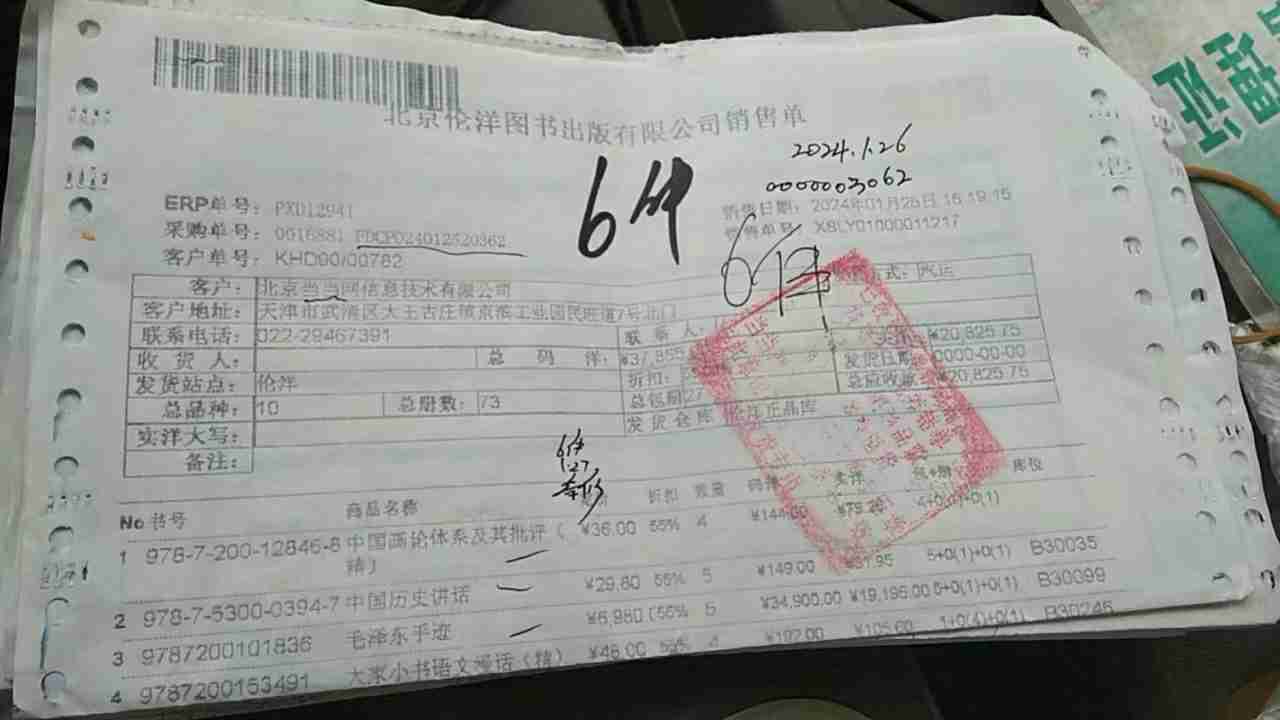 北京伦洋图书出版有限公司销售单
2024.1.26
0000003062
6件
ERP单号: PXD12941
销售日期: 2024年01月25日 16:19:15
采购单号: 0016881 FDCPD24012520362
销售单号 XSLY01000011217
客户单号: KHD00/00782
6件
客户: 北京当当网信息技术有限公司
客户地址: 天津市武清区大王古庄镇京滨工业园民旺道7号北门
联系电话: 022-29467391
联系人:
¥20,825.75
收货人:
总码洋: ¥37,855
发货日期 0000-00-00
发货站点: 伦洋
折扣:
总应收款 ¥20,825.75
总品种: 10
总册数: 73
总包册 27
实洋大写:
发货仓库 伦洋正品库
备注:
No 书号 商品名称 折扣 数量 码洋 实洋 包+册 库位
1 978-7-200-12846-8 中国画论体系及其批评（精） ¥36.00 55% 4 ¥144.00 ¥79.20
2 978-7-5300-0394-7 中国历史讲话 ¥29.80 55% 5 ¥149.00 5+0(1)+0(1) B30035
3 9787200101836 毛泽东手迹 ¥6,980 (55% 5 ¥34,900.00 ¥19,195.00 5+0(1)+0(1) B30099
4 9787200153491 大家小书语文漫话（精） ¥48.00 55% 4 ¥192.00 ¥105.60 1+0(4)+0(1) B30245